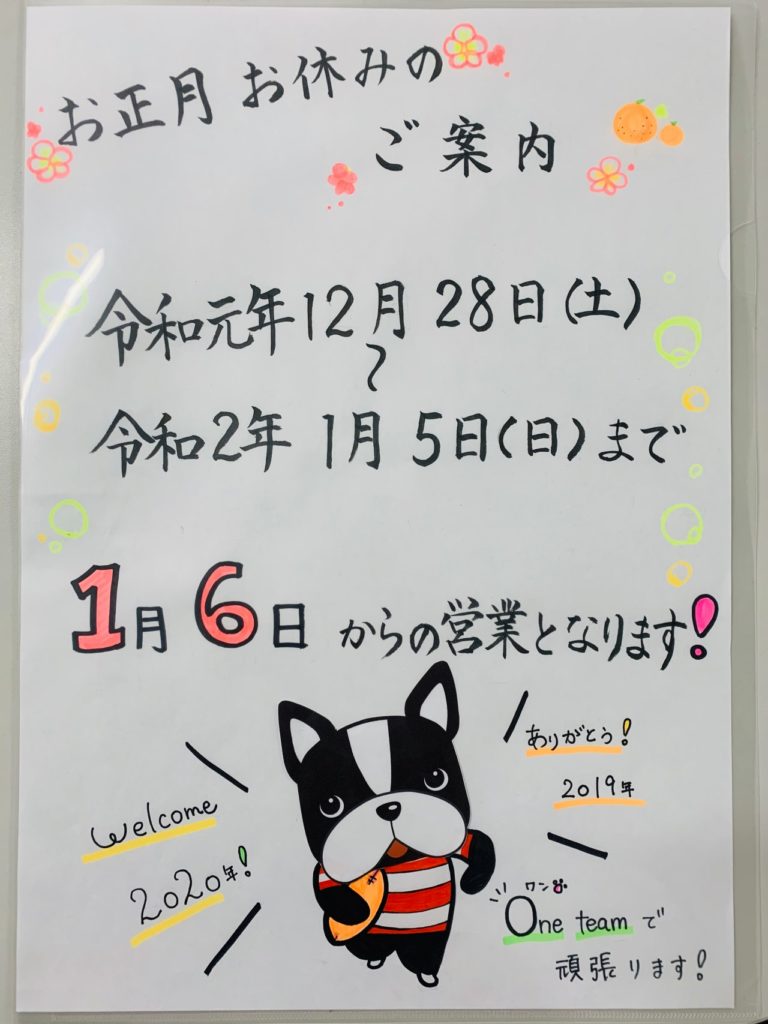 お正月 お休みの
ご案内
令和元年12月 28日(土)
〜
令和2年 1月 5日(日)まで
1月 6日 からの営業となります!
ありがとう!
2019年
welcome
2020年!
ワン
One teamで
頑張ります!